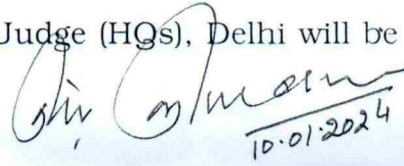 Judge (HQs), Delhi will be
10.01.2024